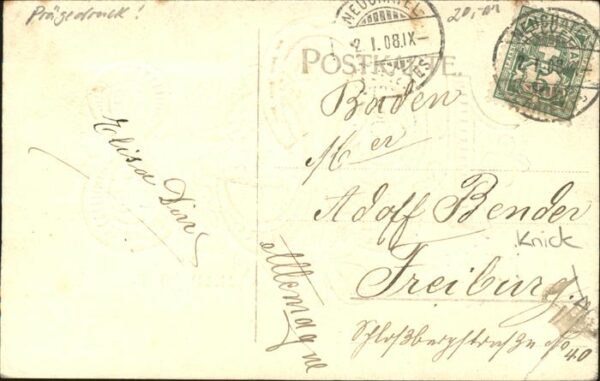 Prägedruck!
20,-
NEUCHATEL
2.I.08.IX-
POSTKARTE.
Baden
Elisa Dorr
Adolf Bender
Knick
Freiburg.
Allemagne
Schloßbergstraße No 40